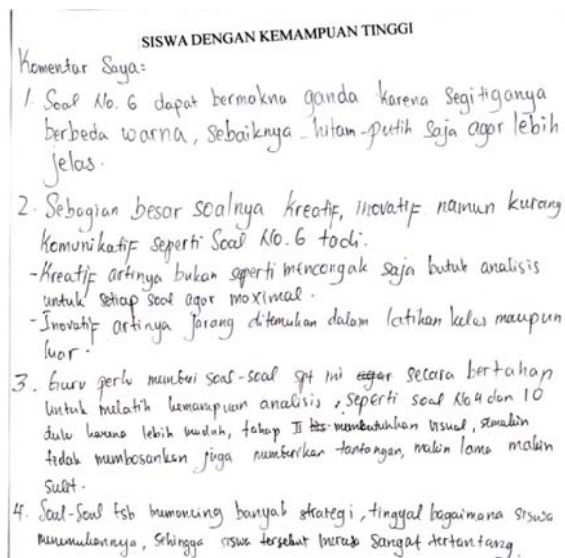 SISWA DENGAN KEMAMPUAN TINGGI
Komentar Saya:
1. Soal No. 6 dapat bermakna ganda karena segitiganya
berbeda warna, sebaiknya hitam-putih saja agar lebih
jelas.
2. Sebagian besar soalnya kreatif, inovatif namun kurang
komunikatif seperti Soal No. 6 tadi.
- Kreatif artinya bukan seperti mencongak saja butuh analisis
untuk setiap soal agar maximal.
- Inovatif artinya jarang ditemukan dalam latihan kelas maupun
luar.
3. Guru perlu memberi soal-soal spt ini agar secara bertahap
untuk melatih kemampuan analisis, seperti soal No 4 dan 10
dulu karena lebih mudah, tahap II membutuhkan visual, semakin
tidak membosankan juga memberikan tantangan, makin lama makin
sulit.
4. Soal-Soal tsb memancing banyak strategi, tinggal bagaimana siswa
menemukannya, sehingga siswa tersebut merasa sangat tertantang